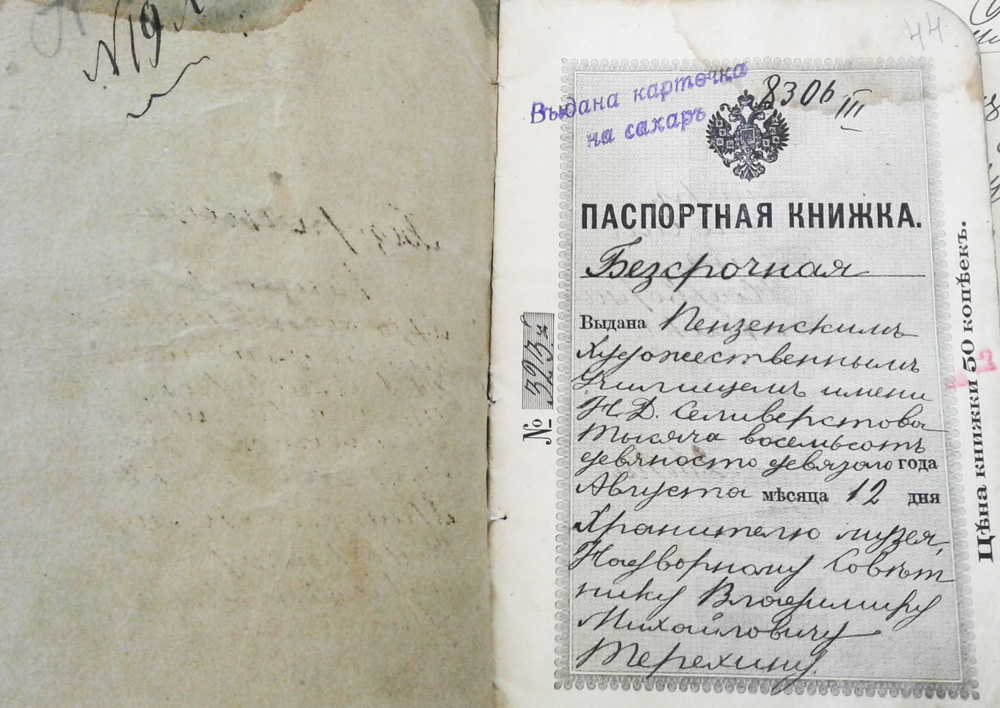 № 19
44
Выдана карточка
на сахаръ
8306
III
ПАСПОРТНАЯ КНИЖКА.
Безсрочная
Выдана Пензенскимъ
Художественнымъ
Училищемъ имени
Н. Д. Селиверстова
тысяча восемьсотъ
девяносто девятаго года
Августа мѣсяца 12 дня
Хранителю музея,
Надворному Совѣт
нику Владимиру
Михайловичу
Терехину.
№ 323
Цѣна книжки 50 копѣекъ.